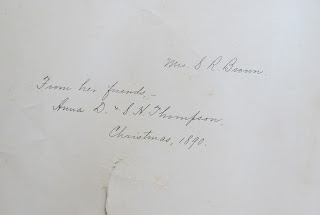 Mrs. S. R. Brown
From her friends,—
Anna D. & S. H. Thompson.
Christmas, 1890.